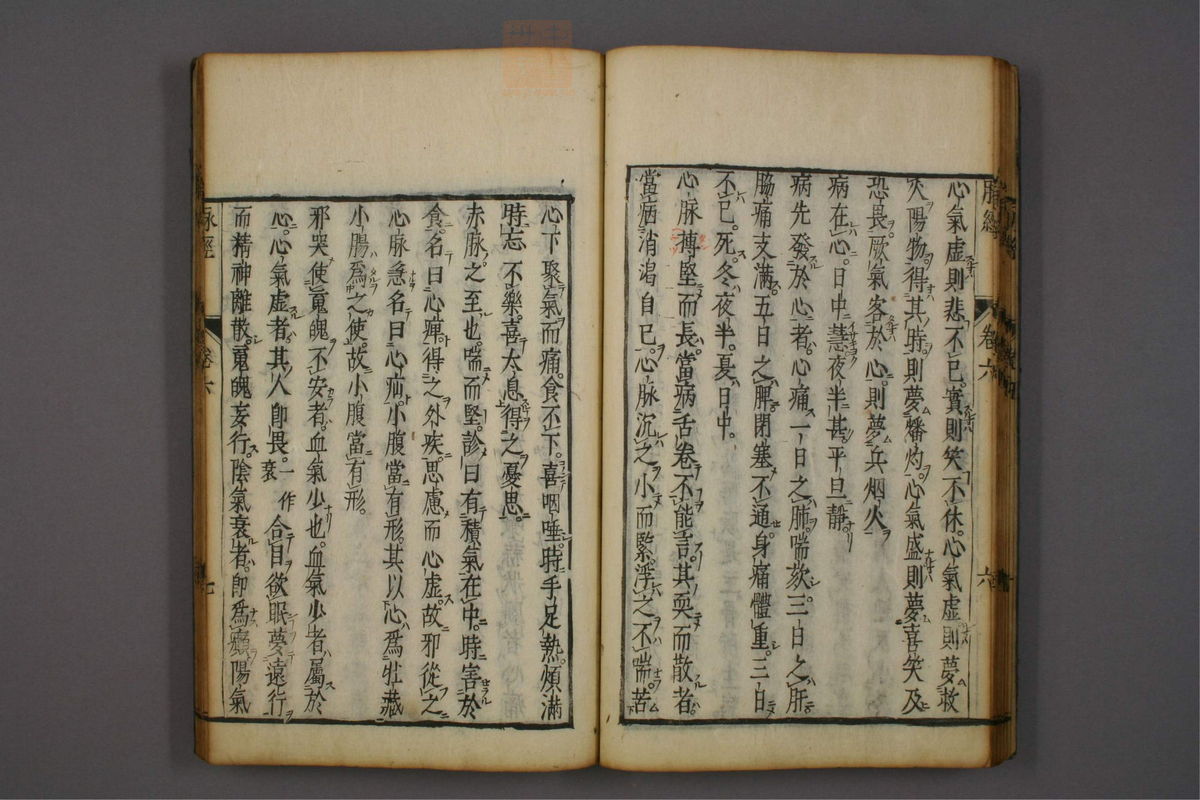 脉經
卷六
六
心氣虛則悲不已。實則笑不休。心氣虛則夢救
火陽物得其時。則夢燔灼。心氣盛則夢喜笑及
恐畏。厥氣客於心。則夢丘烟火
病在心。日中慧夜半甚。平旦靜
病先發於心者。心痛一日之肺。喘欬三日之肝
脇痛支滿。五日之脾閉塞不通。身痛體重。三日
不已。死。冬夜半。夏日中。
心脉搏堅而長。當病舌卷不能言。其耎而散者。
當病消渴自已。心脉沉之小而緊。浮之不喘。苦
心下聚氣而痛。食不下。喜咽唾。時手足熱。煩滿
時忘不樂。喜太息得之憂思。
赤脉之至也。喘而堅。診曰有積氣在中。時害於
食。名曰心痺。得之外疾。思慮而心虛。故邪從之
心脉急名曰心疝。小腹當有形。其以心爲牡藏
小腸爲之使。故小腹當有形。
邪哭使䰟魄不安者。血氣少也。血氣少者屬於
心。心氣虛者。其人卽畏。一作衰合目欲眠夢遠行
而精神離散。䰟魄妄行。陰氣衰者。卽爲癲陽氣
脉經
卷六
七